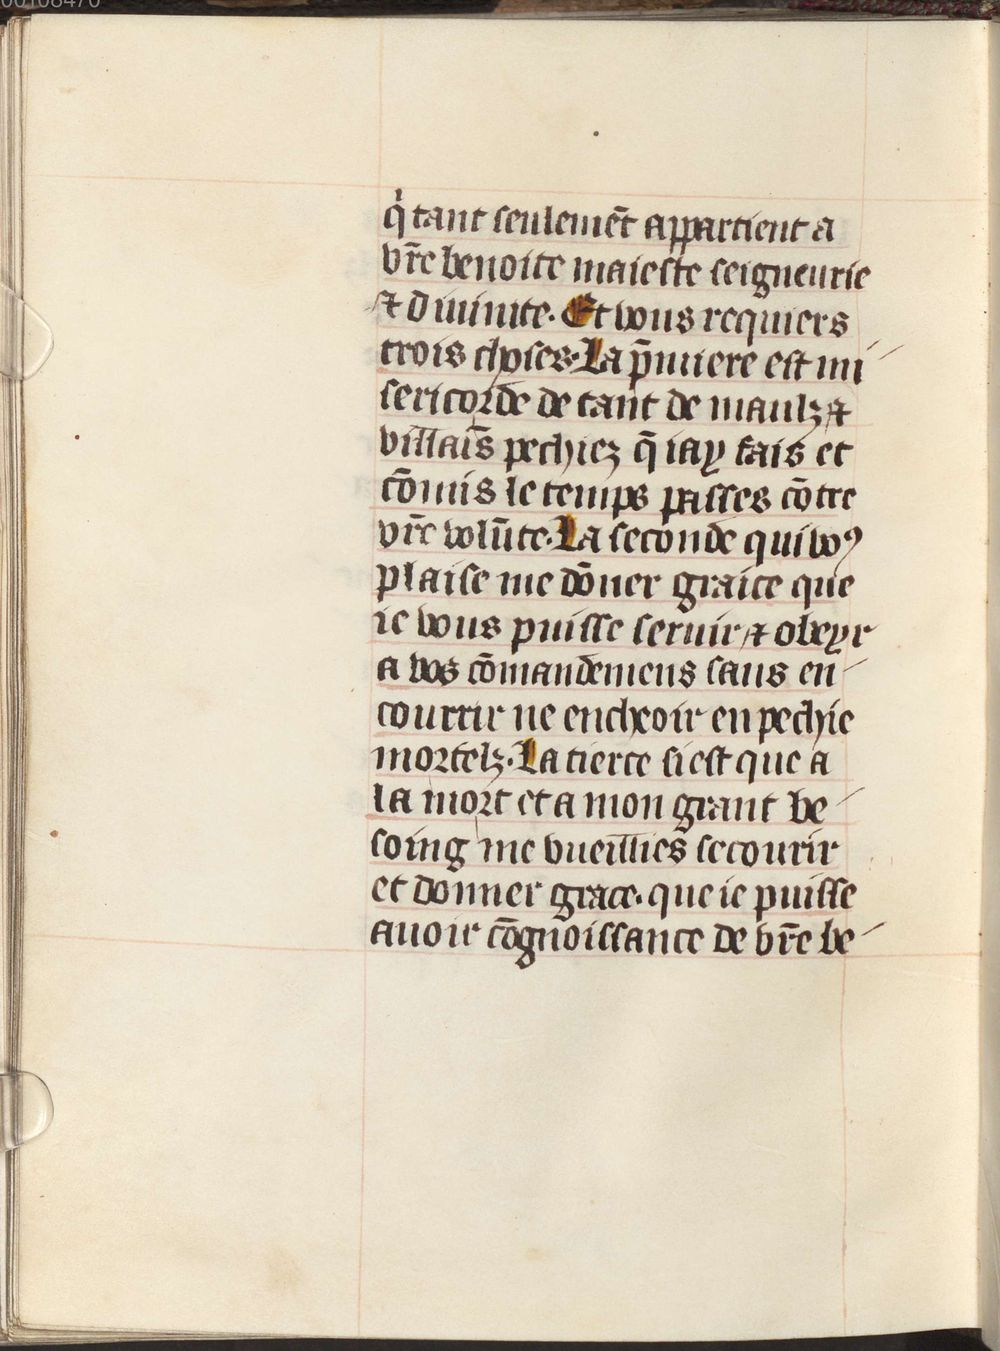 00108470
q̇ tant seulem̃t appartient a
vr̃e benoite maieste seigneurie
⁊ diuinite. Et vous requiers
trois choses. La p̃miere est mi
sericorde de tant de maulz ⁊
villais̃ pechiez q̃ iay fais et
cõmis le temps passes cõtre
vr̃e volũte. La seconde qui voꝰ
plaise me dõner graice que
ie vous puisse seruir ⁊ obeyr
a vos cõmandemens sans en
courrir ne encheoir en pechie
mortelz. La tierce si est que a
la mort et a mon grant be
soing me vueillies secourir
et donner grace. que ie puisse
auoir cõgnoissance de vr̃e be